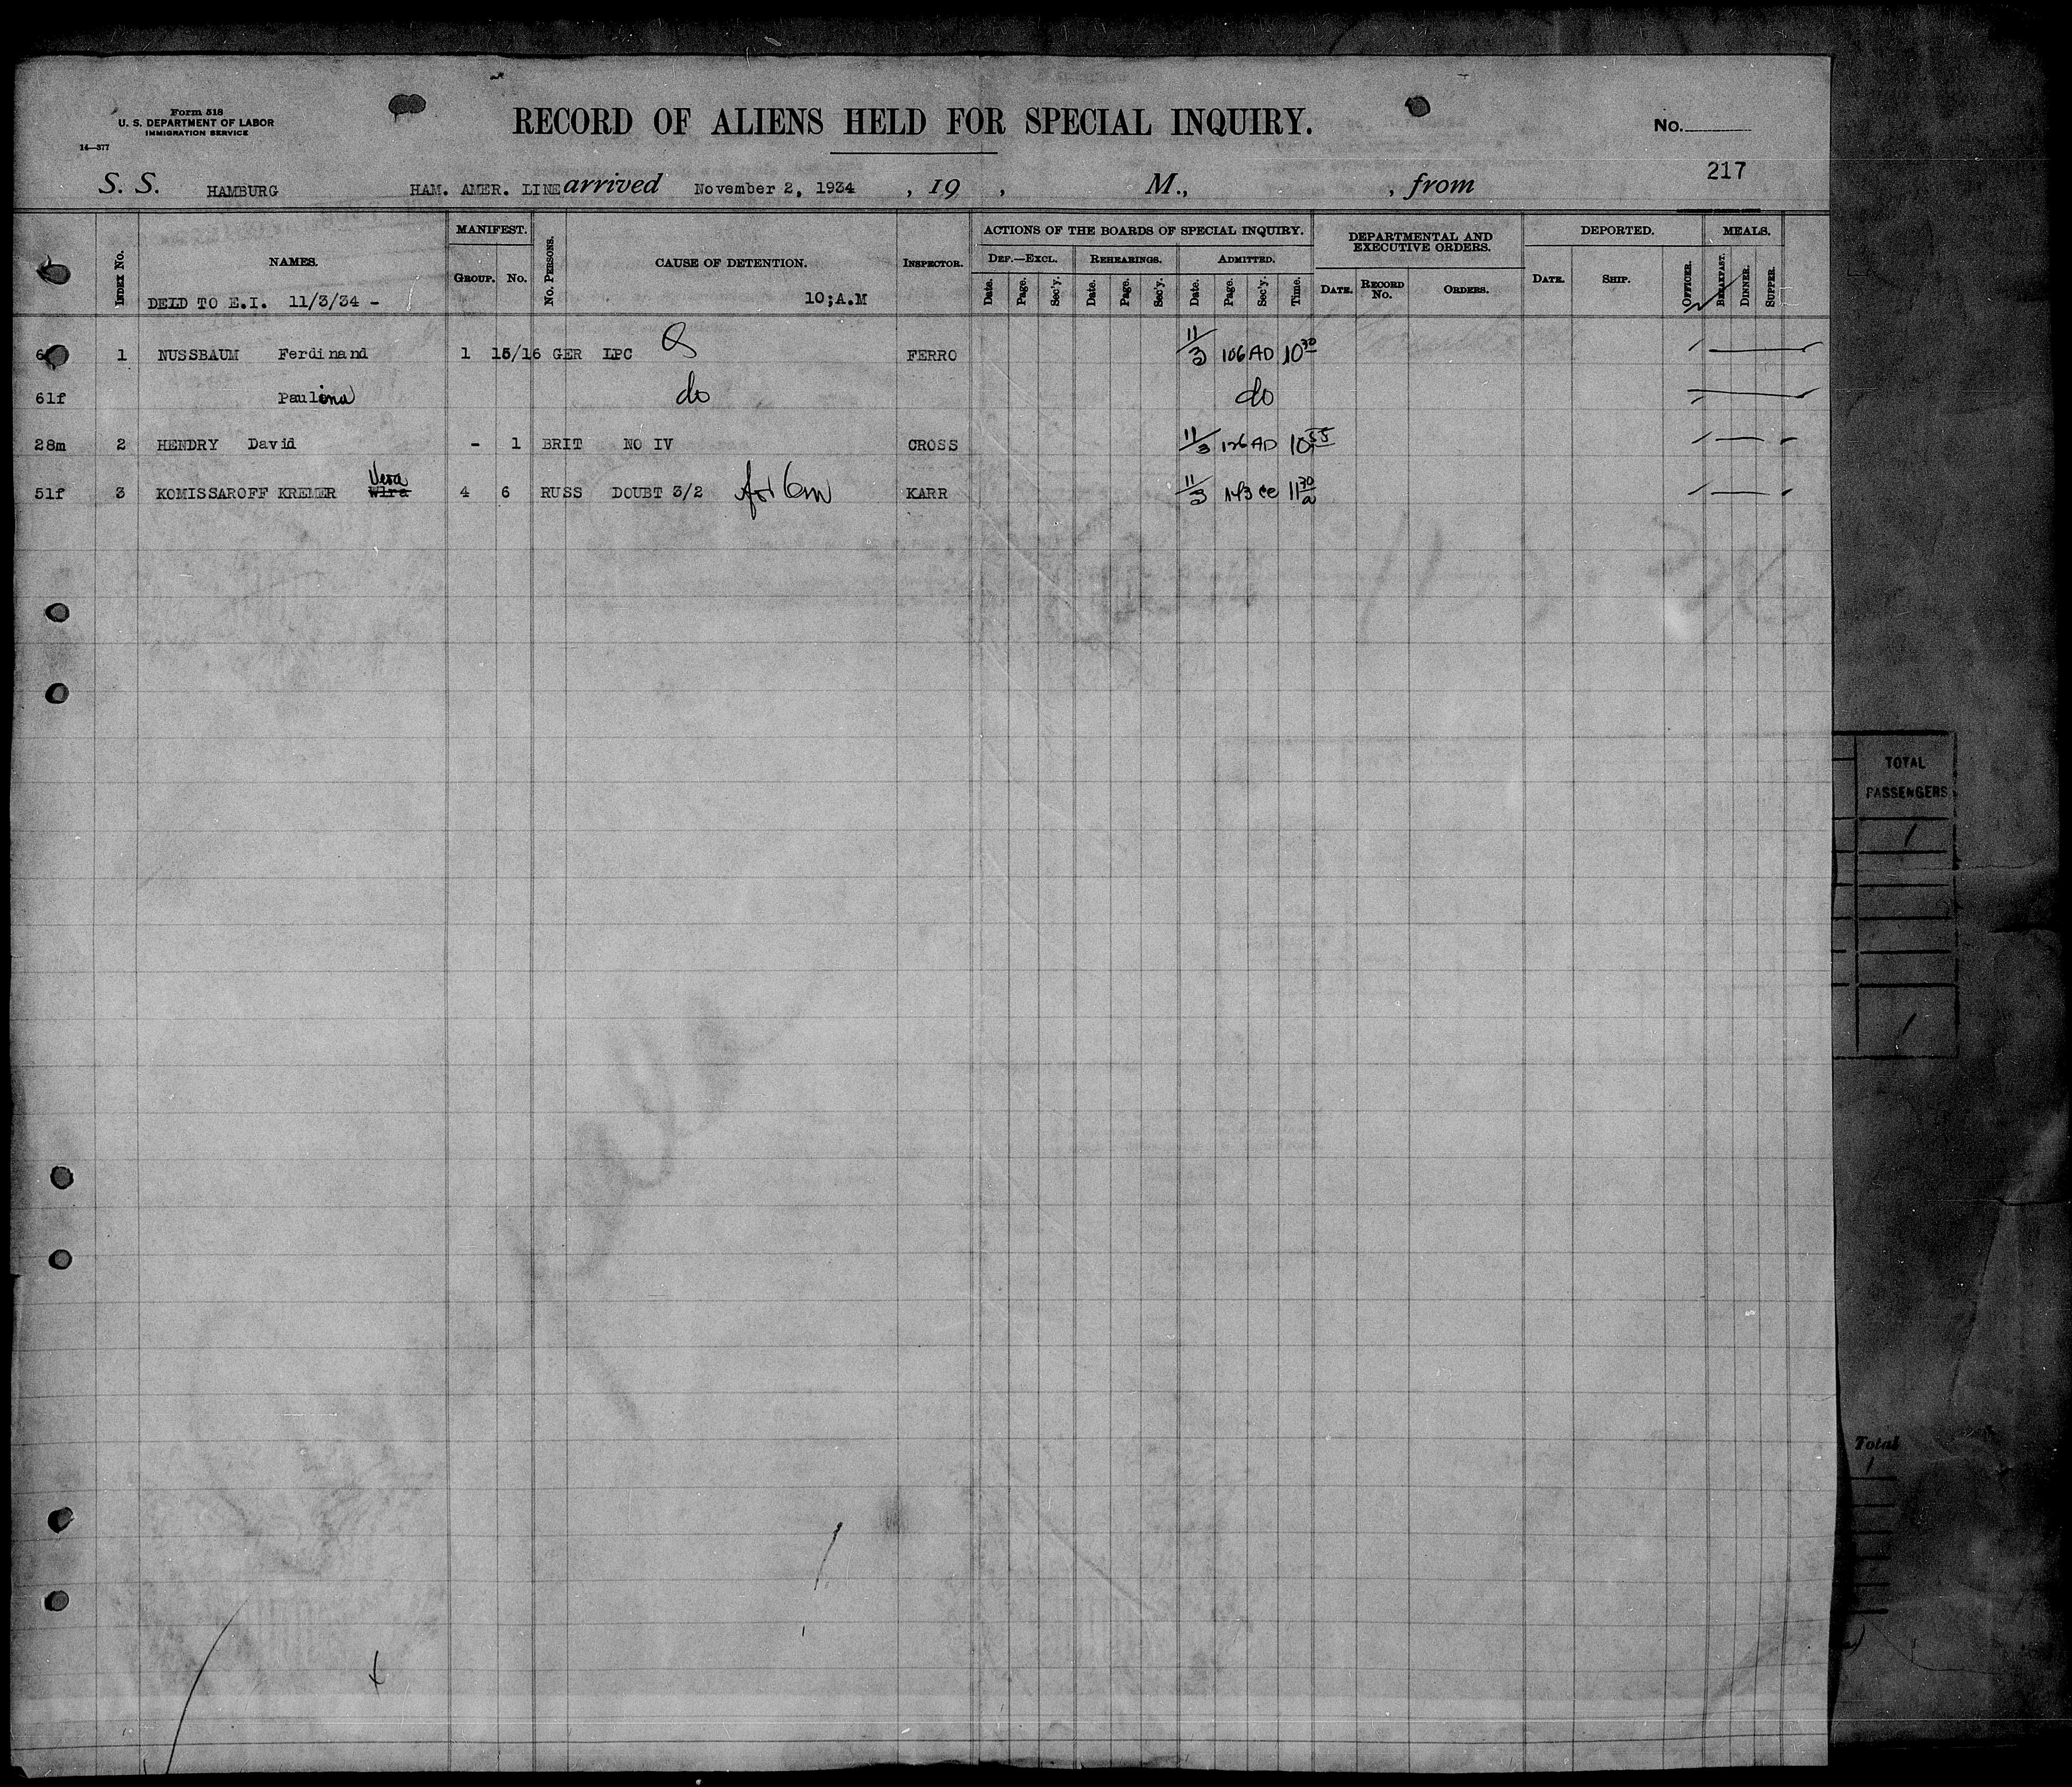 Form 518
U. S. DEPARTMENT OF LABOR
IMMIGRATION SERVICE
14—377
RECORD OF ALIENS HELD FOR SPECIAL INQUIRY.
No.
217
S. S. HAMBURG HAM. AMER. LINE arrived November 2, 1934 , 19 , M., , from
INDEX No. NAMES. MANIFEST. GROUP. No. No. PERSONS. CAUSE OF DETENTION. INSPECTOR. ACTIONS OF THE BOARDS OF SPECIAL INQUIRY. DEPARTMENTAL AND EXECUTIVE ORDERS. DEPORTED. MEALS.
DEF.—EXCL. REHEARINGS. ADMITTED.
Date. Page. Sec'y. Date. Page. Sec'y. Date. Page. Sec'y. Time. DATE. RECORD No. ORDERS. DATE. SHIP. OFFICER. BREAKFAST. DINNER. SUPPER.
DELD TO E.I. 11/3/34 - 10;A.M
1 NUSSBAUM Ferdinand 1 15/16 GER LPC FERRO 11/3 106 AD 10 30
61f Paulina do do
28m 2 HENDRY David - 1 BRIT NO IV CROSS 11/3 126 AD 10 55
51f 3 KOMISSAROFF KREMER Vera Wira 4 6 RUSS DOUBT 3/2 for 6m KARR 11/3 143 CC 11 30 a
TOTAL
PASSENGERS
Total